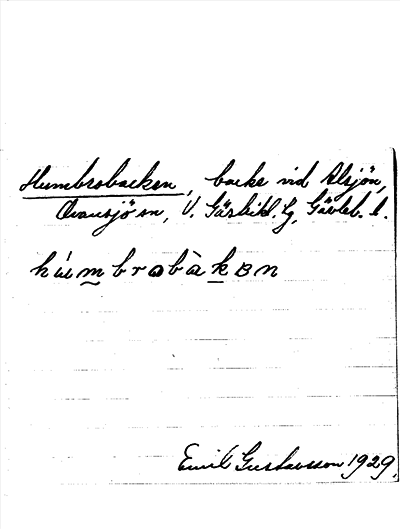 Humbrobacken, backe vid Alsjön,
Ovansjö sn, V. Gästrikl. hg, Gävleb. l.
húmbrobàkɐn
Emil Gustavsson 1929.